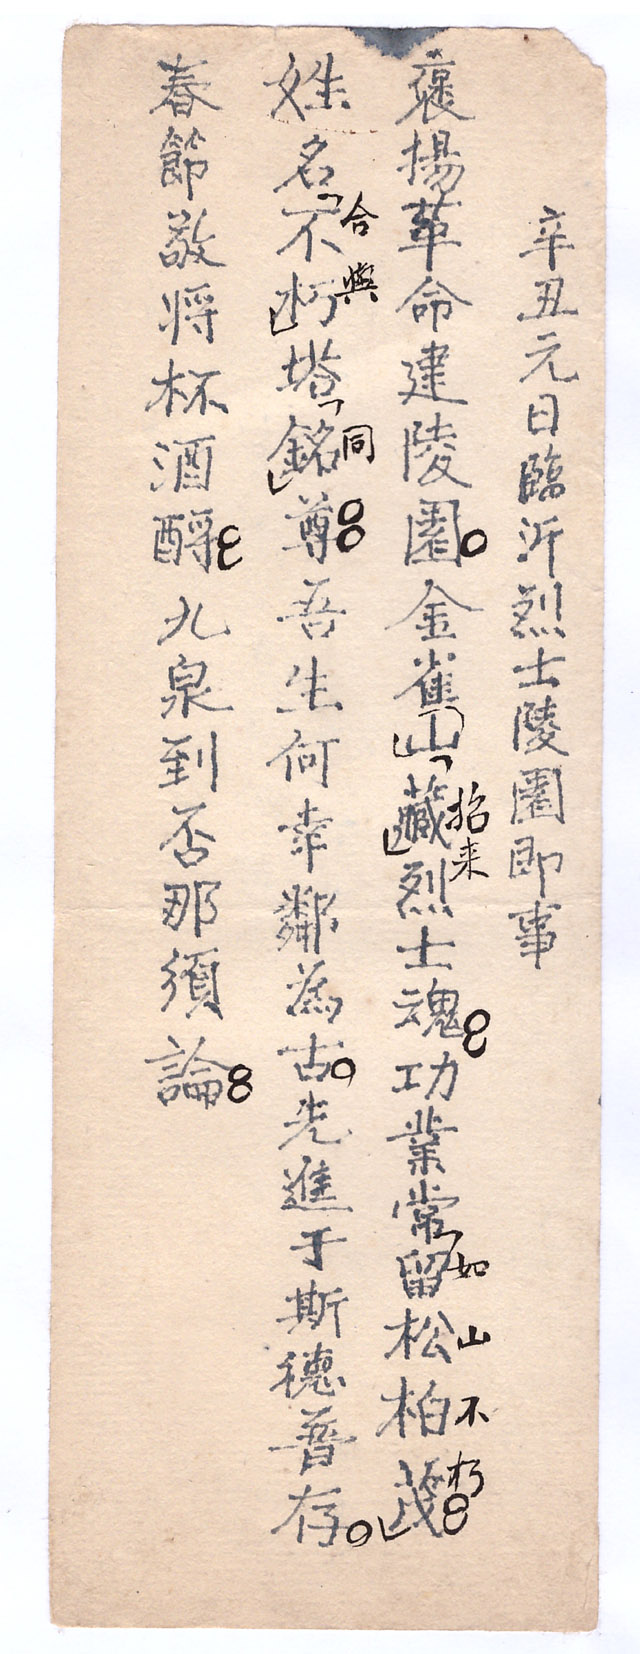 辛丑元日臨沂烈士陵園即事
褒揚革命建陵園金雀山藏烈士魂功業常留松柏茂
招来
如山不朽
姓名不朽塔銘尊吾生何幸鄰為古先進于斯德普存
合與
同
春節敬将杯酒酹九泉到否那須論